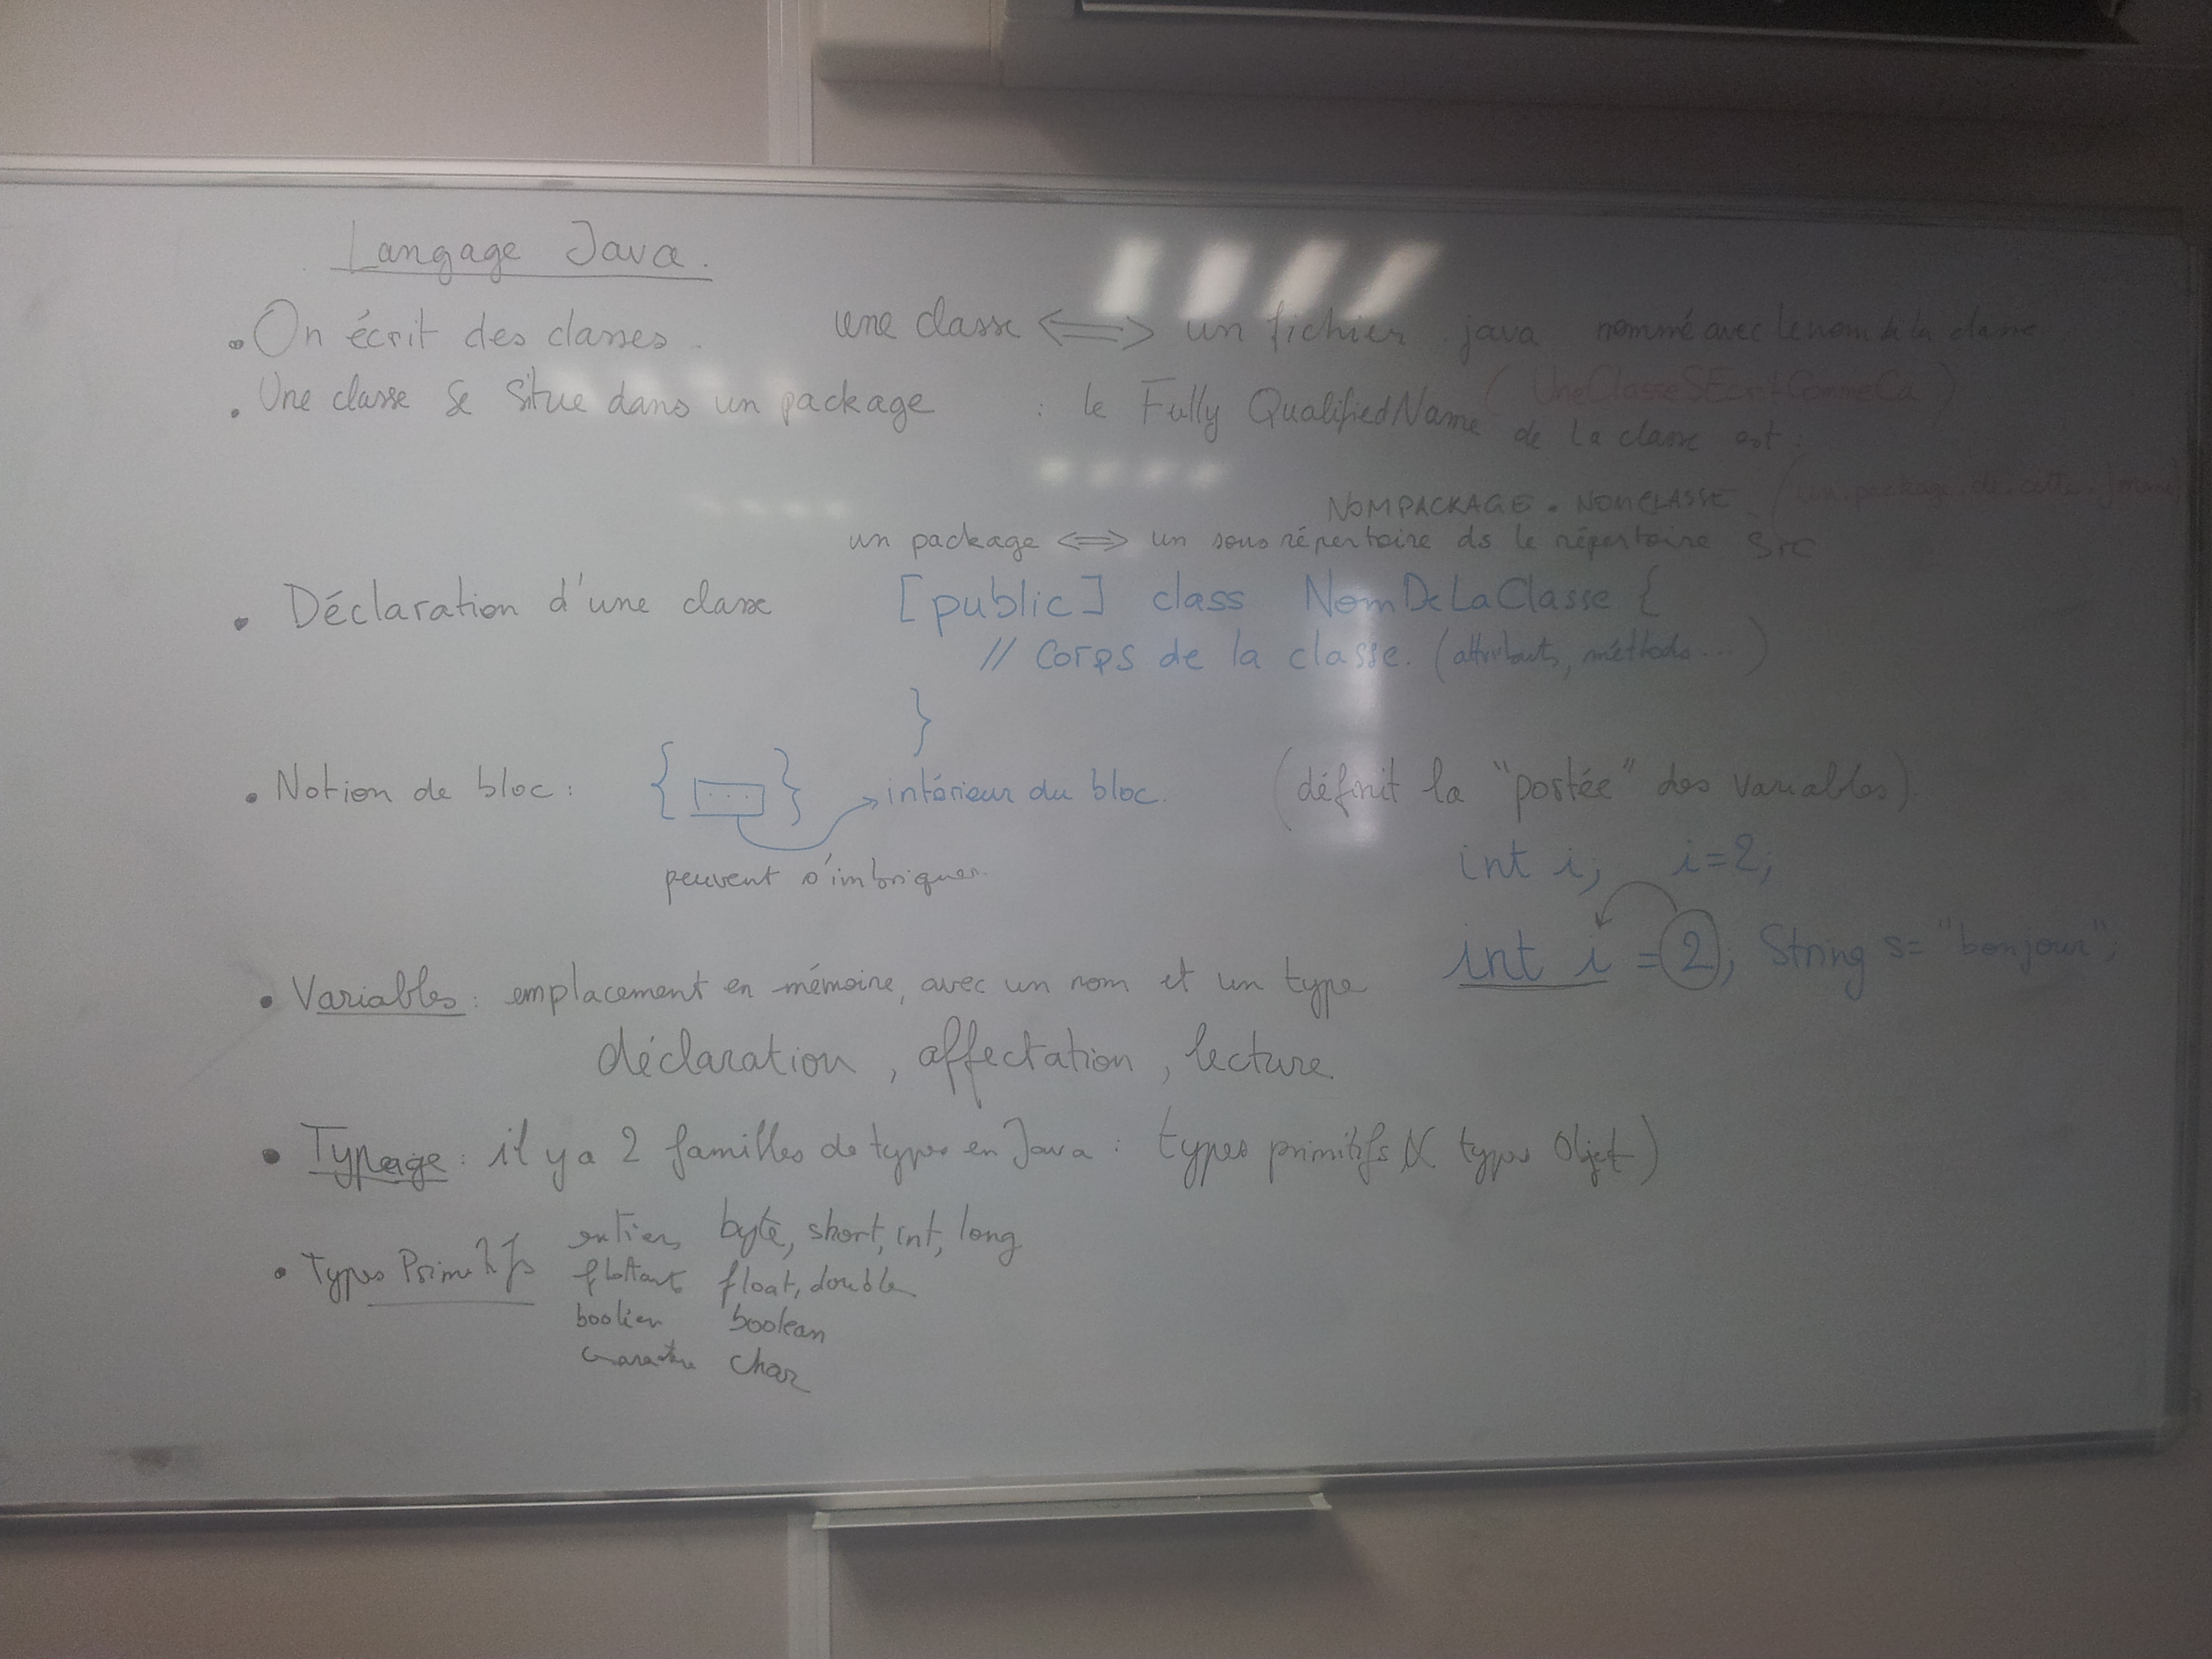 Langage Java.
• On écrit des classes. une classe <=> un fichier .java nommé avec le nom de la classe
(UneClasseSEcritCommeCa)
• Une classe se situe dans un package : le Fully QualifiedName de la classe est :
NOMPACKAGE . NOMCLASSE (un.package.de.cette.forme)
un package <=> un sous répertoire ds le répertoire src
• Déclaration d'une classe [public] class NomDeLaClasse {
// Corps de la classe. (attributs, méthodes ...)
}
• Notion de bloc : { ... } intérieur du bloc. (définit la "portée" des variables).
peuvent s'imbriquer.
int i; i=2;
int i = 2; String s= "bonjour";
• Variables : emplacement en mémoire, avec un nom et un type
déclaration, affectation, lecture
• Typage : il y a 2 familles de types en Java : types primitifs (types Objet)
• Types Primitifs entiers byte, short, int, long
flottants float, double
booléen boolean
caractère char